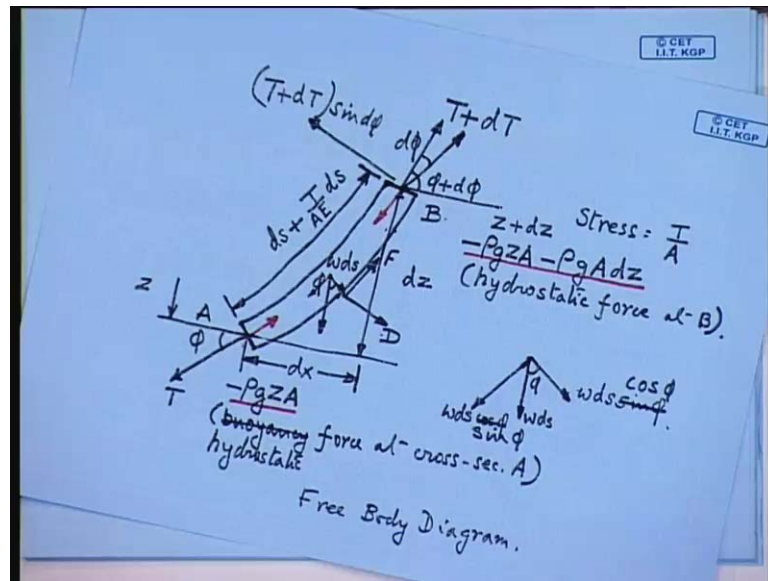 © CET
I.I.T. KGP
© CET
I.I.T. KGP
(T+dT) sin dφ
T+dT
dφ
φ+dφ
ds + T/AE ds
B.
Z+dz
Stress = T/A
-ρgzA - ρgAdz
(hydrostatic force at B).
F
wds
dz
φ
Z
A
D
φ
dx
T
-ρgzA
(buoyancy force at cross-sec. A)
hydrostatic
φ
cosφ
wds sinφ.
wds cosφ
sinφ
wds
Free Body Diagram.